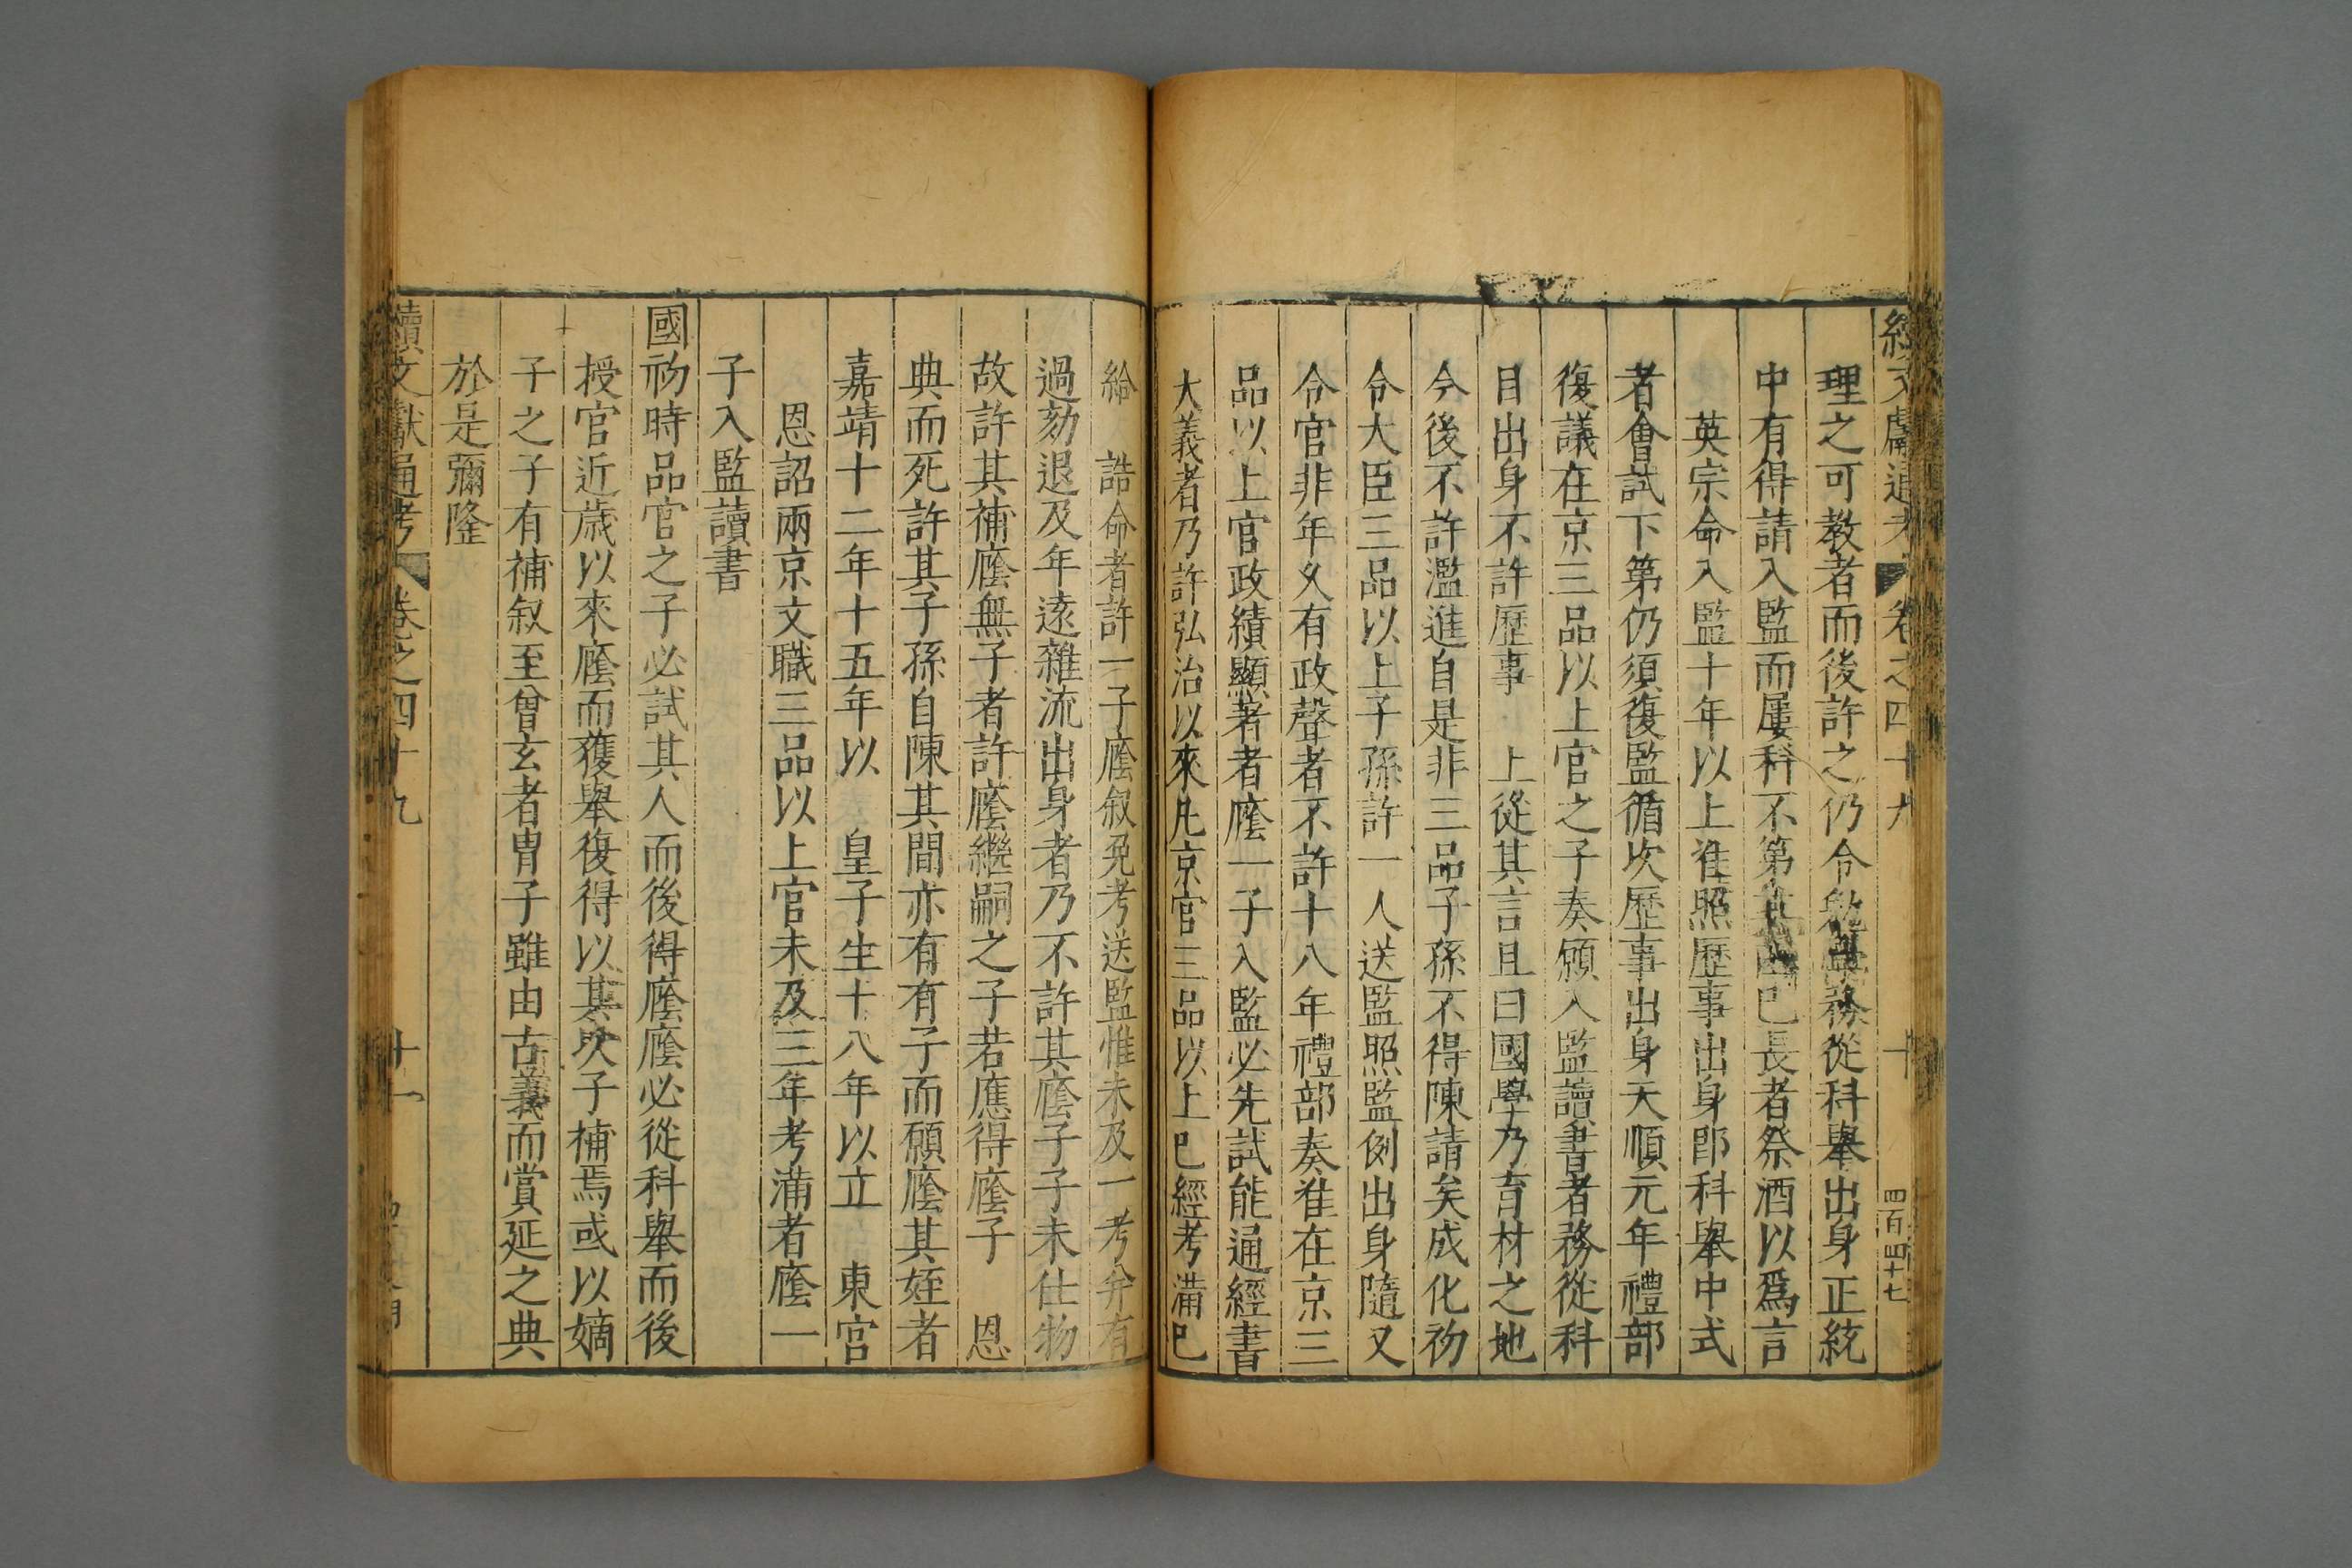 續文獻通考 卷之四十九 十 四百四十七
理之可教者而後許之仍令勉學務從科舉出身正統
中有得請入監而屢科不第其齒已長者祭酒以爲言
英宗命入監十年以上准照歷事出身卽科舉中式
者會試下第仍須復監循次歷事出身天順元年禮部
復議在京三品以上官之子奏願入監讀書者務從科
目出身不許歷事 上從其言且曰國學乃育材之地
今後不許濫進自是非三品子孫不得陳請矣成化初
令大臣三品以上子孫許一人送監照監例出身隨又
令官非年久有政聲者不許十八年禮部奏准在京三
品以上官政績顯著者廕一子入監必先試能通經書
大義者乃許弘治以來凡京官三品以上已經考滿已
給 誥命者許一子廕叙免考送監惟未及一考并有
過劾退及年遠雜流出身者乃不許其廕子子未仕物
故許其補廕無子者許廕繼嗣之子若應得廕子 恩
典而死許其子孫自陳其間亦有有子而願廕其姪者
嘉靖十二年十五年以 皇子生十八年以立 東宮
恩詔兩京文職三品以上官未及三年考滿者廕一
子入監讀書
國初時品官之子必試其人而後得廕廕必從科舉而後
授官近歲以來廕而獲舉復得以其次子補焉或以嫡
子之子有補叙至曾玄者胄子雖由古義而賞延之典
於是彌隆
續文獻通考 卷之四十九 十一